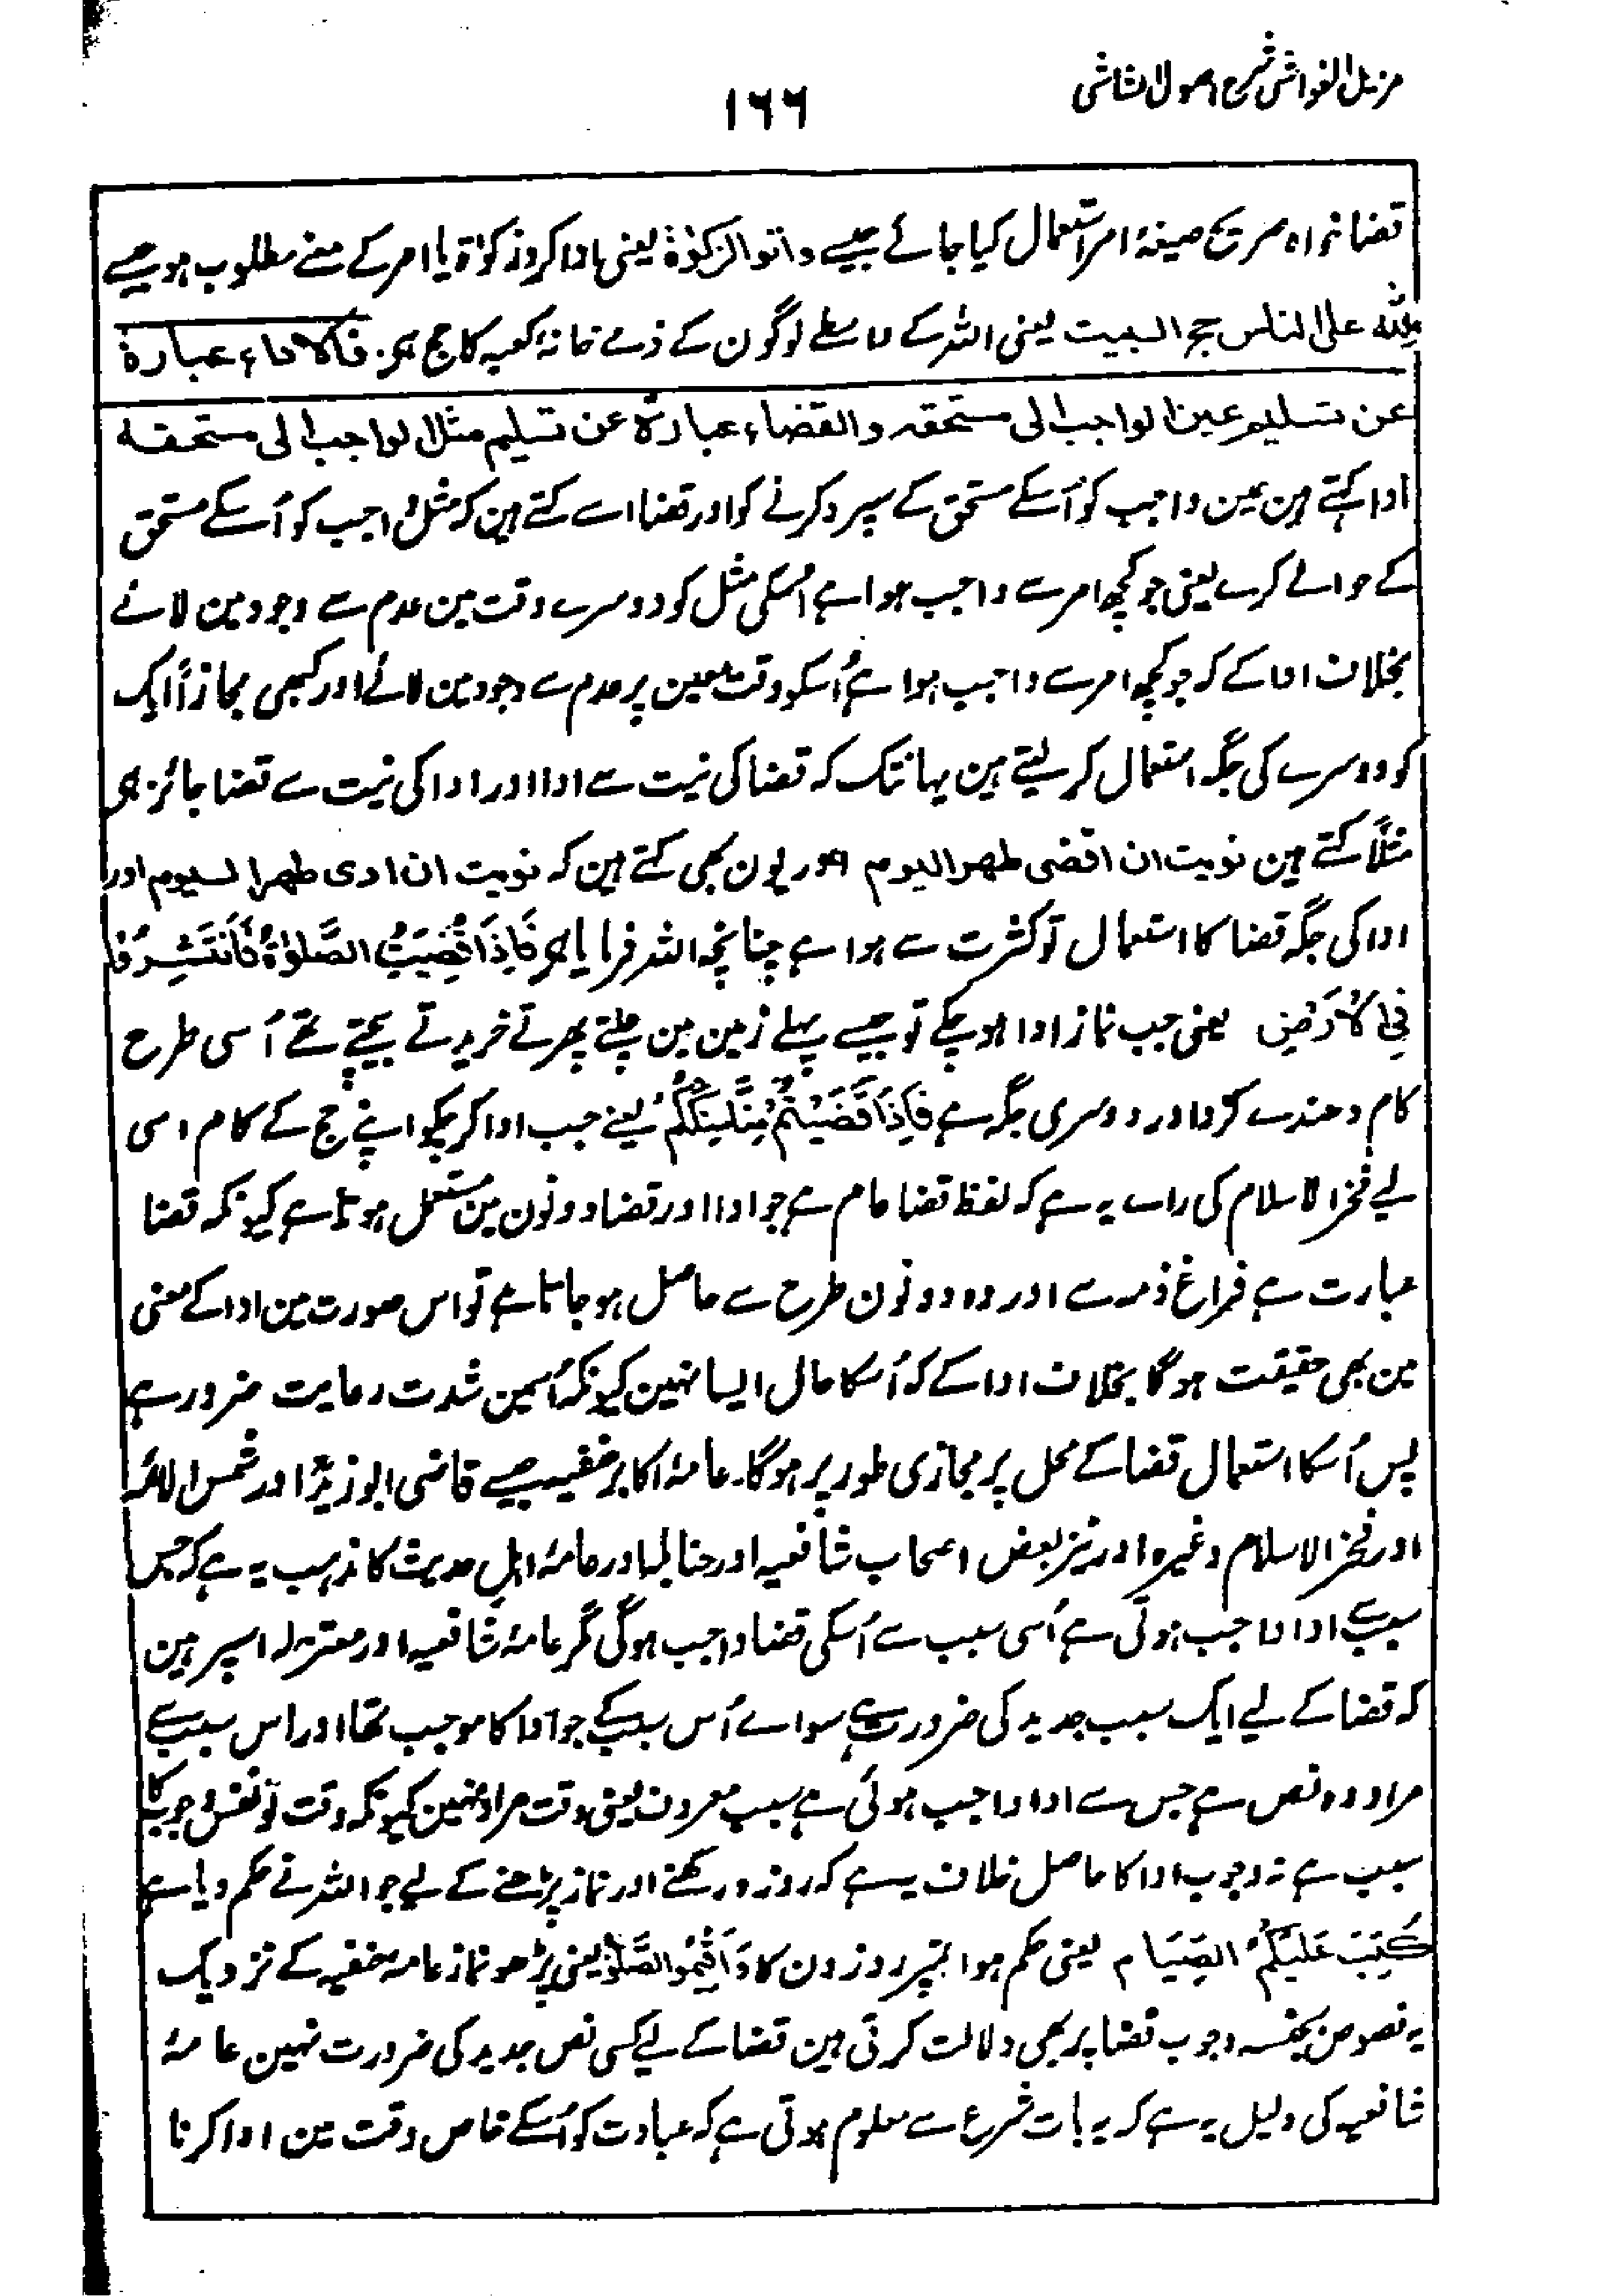 مزیل الغواشی شرح اصول الشاشی
۱۶۶
قضا خواہ صریح صیغۂ امر استعمال کیا جائے جیسے واتوا الزکوٰۃ یعنی ادا کرو زکوٰۃ یا امر کے معنے مطلوب ہو جیسے
للہ علی الناس حج البیت یعنی اللہ کے واسطے لوگون کے ذمے خانۂ کعبہ کا حج ہی۔ فالاداء عبارۃ
عن تسلیم عین الواجب الی مستحقہ والقضاء عبارۃ عن تسلیم مثل الواجب الی مستحقہ
ادا کہتے ہین عین واجب کو اُسکے مستحق کے سپرد کرنے کو اور قضا اسے کہتے ہین کہ مثل واجب کو اُسکے مستحق
کے حوالے کرے یعنی جو کچھ امر سے واجب ہوا ہے اُسکی مثل کو دوسرے وقت مین عدم سے وجود مین لائے
بخلاف ادا کے کہ جو کچھ امر سے واجب ہوا ہے اُسکو وقت معین پر عدم سے وجود مین لائے اور کبھی مجازاً ایک
کو دوسرے کی جگہ استعمال کر لیتے ہین یہانتک کہ قضا کی نیت سے ادا اور ادا کی نیت سے قضا جائز ہی
مثلاً کہتے ہین نویت ان اقضی ظھر الیوم اور یون بھی کہتے ہین کہ نویت ان ادی ظھر الیوم اور
ادا کی جگہ قضا کا استعمال تو کثرت سے ہوا ہے چنانچہ اللہ فرمایا ہی فَاِذَا قُضِیَتِ الصَّلٰوۃُ فَانْتَشِرُوْا
فِی الْاَرْضِ یعنی جب نماز ادا ہو چکے تو جیسے پہلے زمین مین چلتے پھرتے خریدتے بیچتے تھے اُسی طرح
کام دھندے کرو اور دوسری جگہ ہے فَاِذَا قَضَیْتُمْ مَّنَاسِکَکُمْ یعنے جب ادا کر چکو اپنے حج کے کام اسی
لیے فخر الاسلام کی راے یہ ہے کہ لفظ قضا عام ہے جو ادا اور قضا دونون مین مستعمل ہوتا ہے کیونکہ قضا
عبارت ہے فراغ ذمہ سے اور وہ دونون طرح سے حاصل ہو جاتا ہے تو اس صورت مین ادا کے معنی
مین بھی حقیقت ہوگا بخلاف ادا کے کہ اُسکا حال ایسا نہین کیونکہ اُسمین شدت رعایت ضرور ہے
پس اُسکا استعمال قضا کے محل پر مجازی طور پر ہوگا۔ عامۂ اکابر حنفیہ جیسے قاضی ابو زیدؒ اور شمس الائمہ
اور فخر الاسلام وغیرہ اور نیز بعض اصحاب شافعیہ اور حنابلہ اور عامۂ اہل حدیث کا مذہب یہ ہے کہ جس
سبب سے ادا واجب ہوتی ہے اُسی سبب سے اُسکی قضا واجب ہوگی مگر عامۂ شافعیہ اور معتزلہ اسپر ہین
کہ قضا کے لیے ایک سبب جدید کی ضرورت ہے سواے اُس سبب کے جو ادا کا موجب تھا اور اس سبب سے
مراد وہ نص ہے جس سے ادا واجب ہوئی ہے سبب معروف یعنی وقت مراد نہین کیونکہ وقت تو نفس وجوب کا
سبب ہے نہ وجوب ادا کا حاصل خلاف یہ ہے کہ روزہ رکھنے اور نماز پڑھنے کے لیے جو اللہ نے حکم دیا ہے
کُتِبَ عَلَیْکُمُ الصِّیَام یعنی حکم ہوا تمپر روزون کا وَاَقِیْمُوا الصَّلٰوۃَ یعنی پڑھو نماز عامۂ حنفیہ کے نزدیک
یہ نصوص بعینہ وجوب قضا پر بھی دلالت کرتی ہین قضا کے لیے کسی نص جدید کی ضرورت نہین عامۂ
شافعیہ کی دلیل یہ ہے کہ یہ بات شرع سے معلوم ہوتی ہے کہ عبادت کو اُسکے خاص وقت مین ادا کرنا